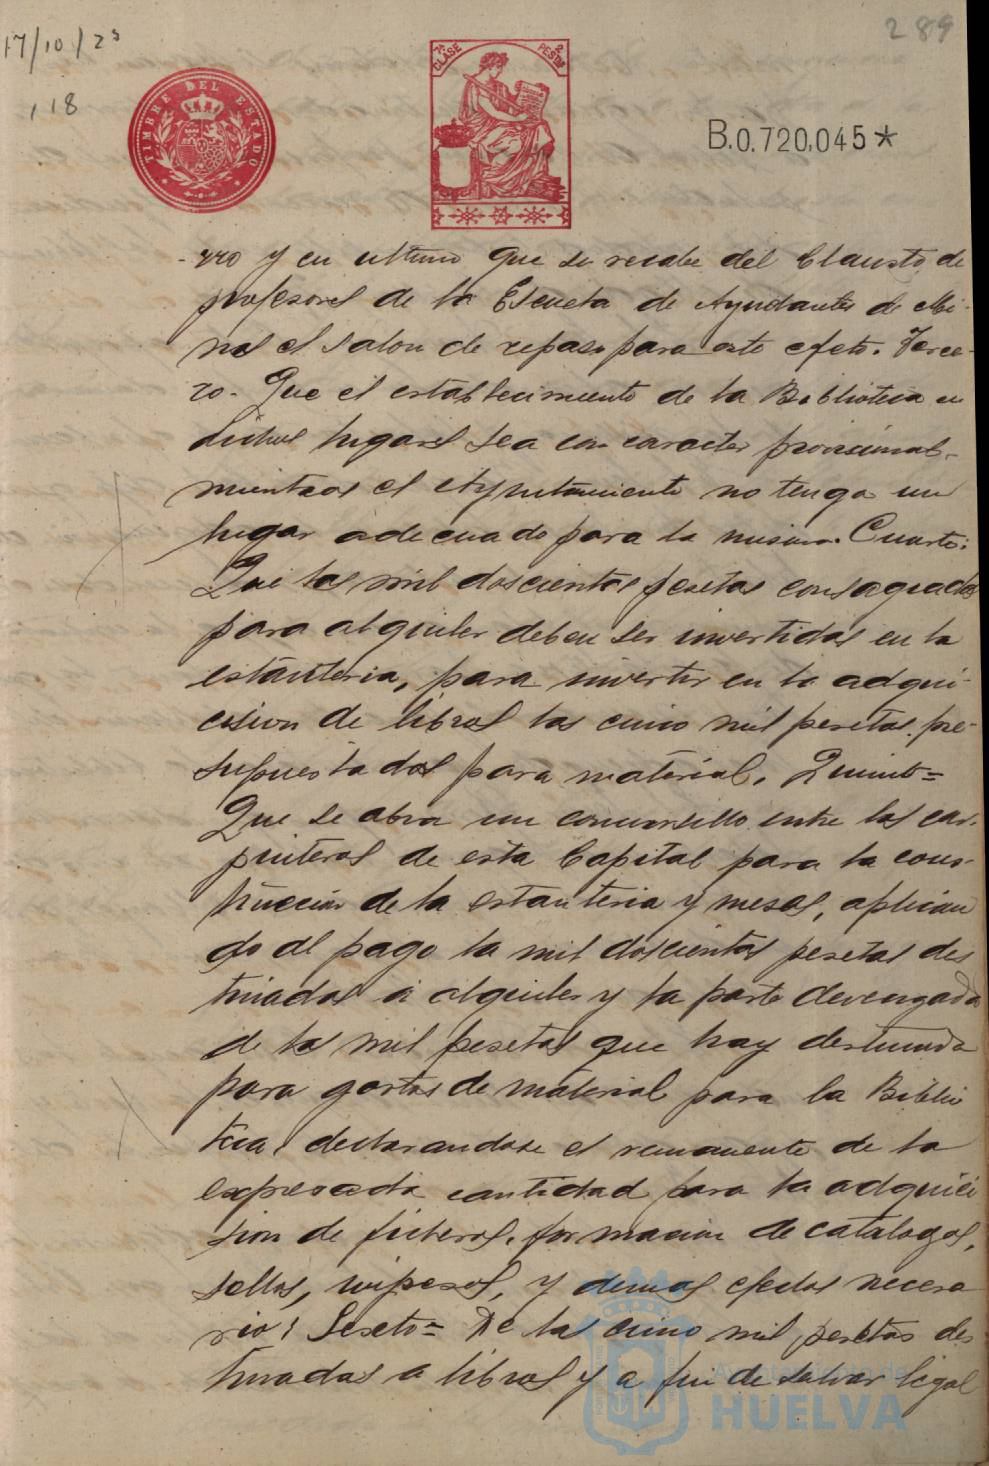 17/10/23
289
, 18
TIMBRE DEL ESTADO
7ª CLASE
2 PESTS
B.0.720,045*
-rro y en ultimo que se recabe del Claustro de
profesores de la Escuela de Ayudantes de Mi-
nas el salon de repaso para este efeto. Terce-
ro. Que el establecimiento de la Biblioteca en
dichos lugares sea con caracter provisional-
mientras el Ayuntamiento no tenga un
lugar adecuado para la misma. Cuarto:
Que las mil doscientas pesetas consagradas
para alquiler deben ser invertidas en la
estanteria, para invertir en la adqui-
cision de libros las cinco mil pesetas pre-
supuestadas para material. Quinto=
Que se abra un concursillo entre los car-
pinteros de esta Capital para la cons-
truccion de la estanteria y mesas, aplican
do al pago la mil doscientas pesetas des
tinadas a alquiler y la parte devengada
de las mil pesetas que hay destinada
para gastos de material para la Biblio
teca, declarandose el remanente de la
expresada cantidad para la adquici
sion de ficheros, formacion de catalogos,
sellos, impresos, y demas efectos necesa
rios: Sexto= De las cinco mil pesetas des
tinadas a libros y a fin de salvar legal
Ayuntamiento de
HUELVA